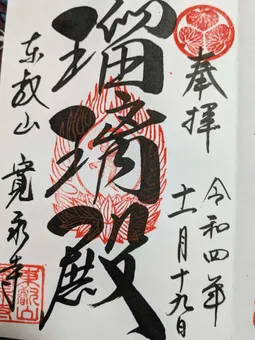 奉拝
令和四年
十一月十九日
瑠璃殿
東叡山
寛永寺
東叡山